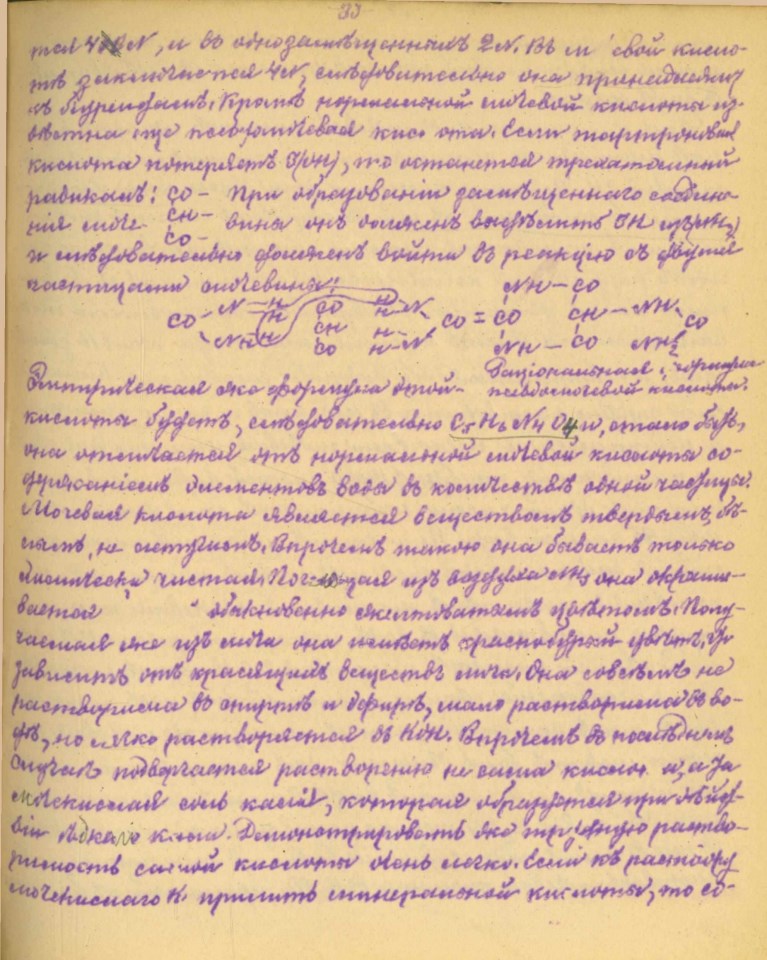 33
тся 4N, и въ однозамѣщенныхъ 2N. Въ м свой кисло-
тѣ заключается 4N, слѣдовательно она принадлежитъ
къ Кромѣ нормальной мочевой кислоты из-
вѣстна еще псевдомочевая кис ота. Если тартроновая
кислота потеряетъ 3(OH), то останется трехатомный
радикалъ: CO – При образованіи замѣщеннаго соедине-
нія моче CH – вина онъ долженъ выдѣлить 3H изъ
CO –
и слѣдовательно долженъ войти въ реакцію съ двумя
частицами мочевины:
NH – CO
CO N – H CO H – N CO = CO CH – NH CO
NH H CH H – N
CO NH – CO NH2
Раціональная формула
Эмпирическая же формула этой псевдомочевой кислоты.
кислоты будетъ, слѣдовательно C5H6N4O4 и, стало быть,
она отличается отъ нормальной мочевой кислоты со-
держаніемъ элементовъ воды въ количествѣ одной частицы.
Мочевая кислота является веществомъ твердымъ, бѣ-
лымъ, не летучимъ. Впрочемъ такою она бываетъ только
химически чистая. изъ воздуха NH3 она окраши-
вается обыкновенно желтоватымъ цвѣтомъ. Полу-
чаемая же изъ мочи она имѣетъ краснобурый цвѣтъ, что
зависитъ отъ красящихъ веществъ мочи. Она совсѣмъ не
растворима въ спиртѣ и эфирѣ, мало растворима въ во-
дѣ, но легко растворяется въ KOH. Впрочемъ въ послѣднемъ
случаѣ подвергается растворенію не сама кислот а, а уже
мочекислая соль калія, которая образуется при дѣйст-
віи ѣдкаго кали. Демонстрировать же трудную раство-
римость самой кислоты очень легко. Если къ раствору
мочекислаго K прилить минеральной кислоты, то об-